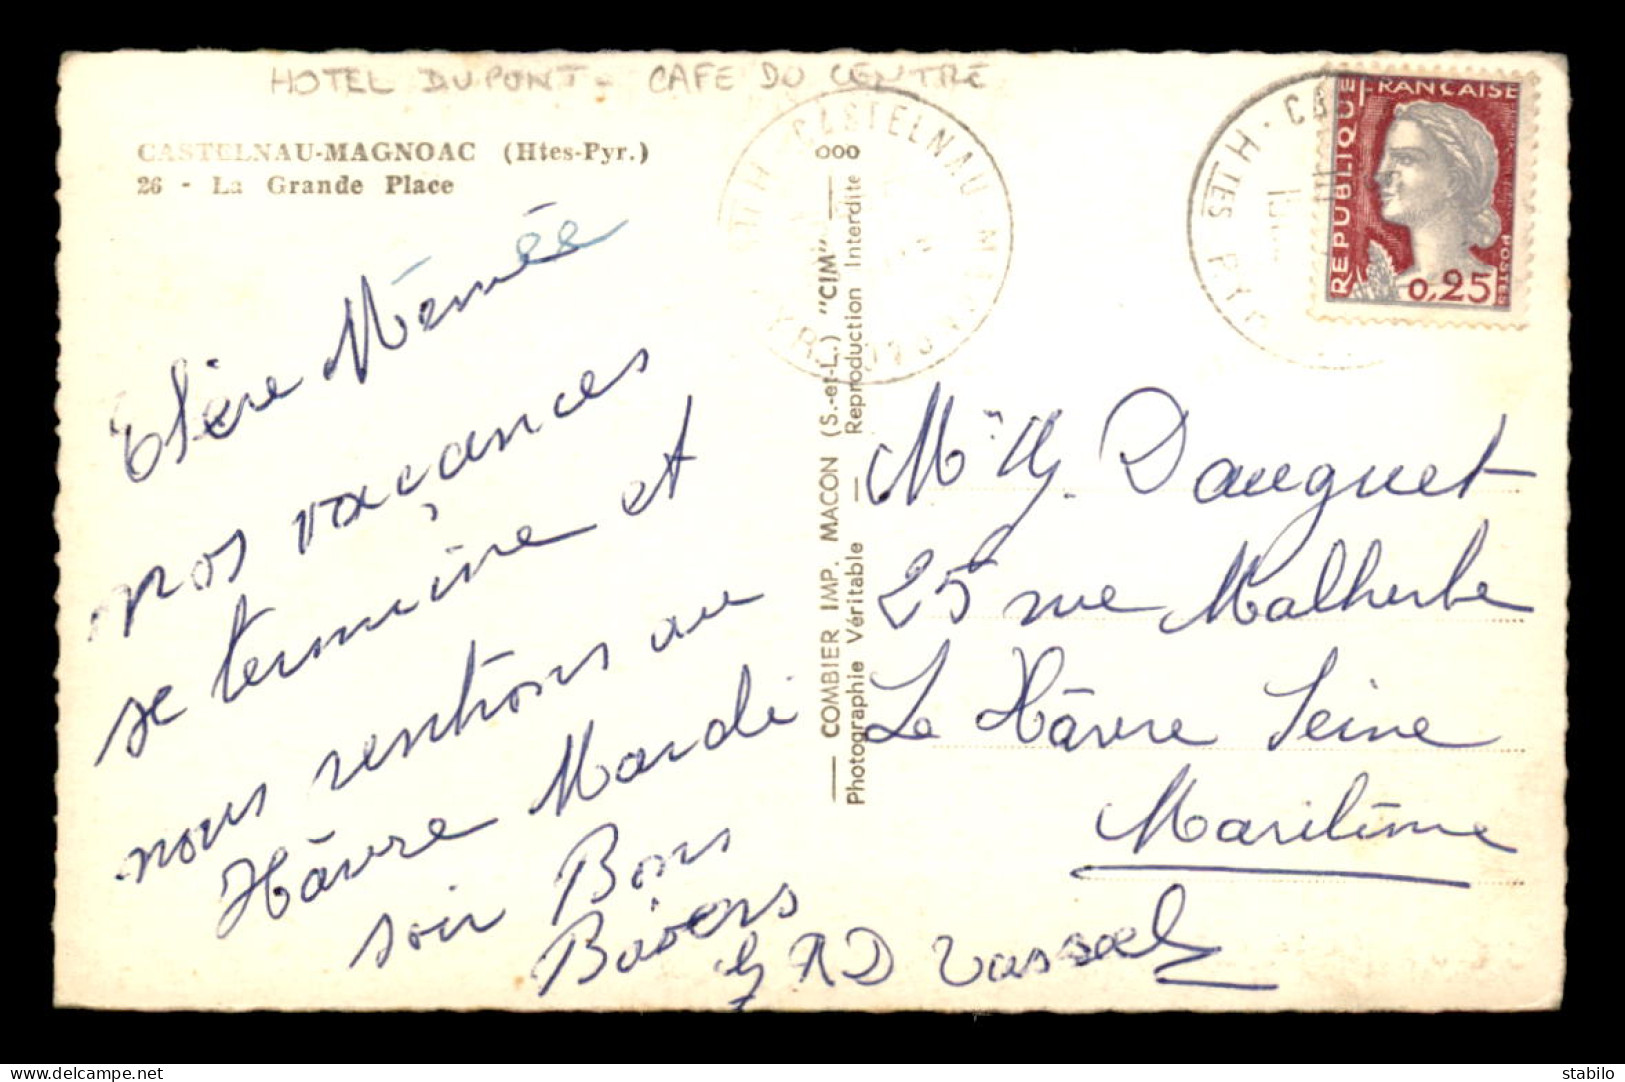 HOTEL DUPONT - CAFE DU CENTRE
CASTELNAU-MAGNOAC (Htes-Pyr.)
26 - La Grande Place
Chère Mémée
nos vacances
se termine et
nous rentrons au
Hâvre Mardi
soir Bons
Baisers
RD Vassal
COMBIER IMP. MACON (S.-et-L.) "CIM"
Photographie Véritable — Reproduction Interdite
CASTELNAU-MAGNOAC
HTES PYR
REPUBLIQUE FRANÇAISE
POSTES
0,25
Dauguet
25 rue Malherbe
Le Hâvre Seine
Maritime
delcampe.net
stabilo